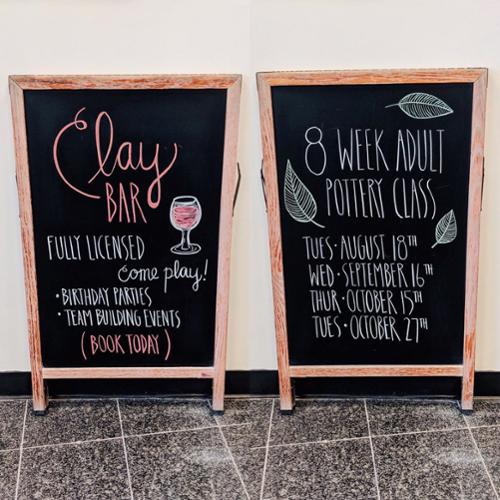 Clay
BAR
FULLY LICENSED
come play!
• BIRTHDAY PARTIES
• TEAM BUILDING EVENTS
(BOOK TODAY)
8 WEEK ADULT
POTTERY CLASS
TUES • AUGUST 18TH
WED • SEPTEMBER 16TH
THUR • OCTOBER 15TH
TUES • OCTOBER 27TH